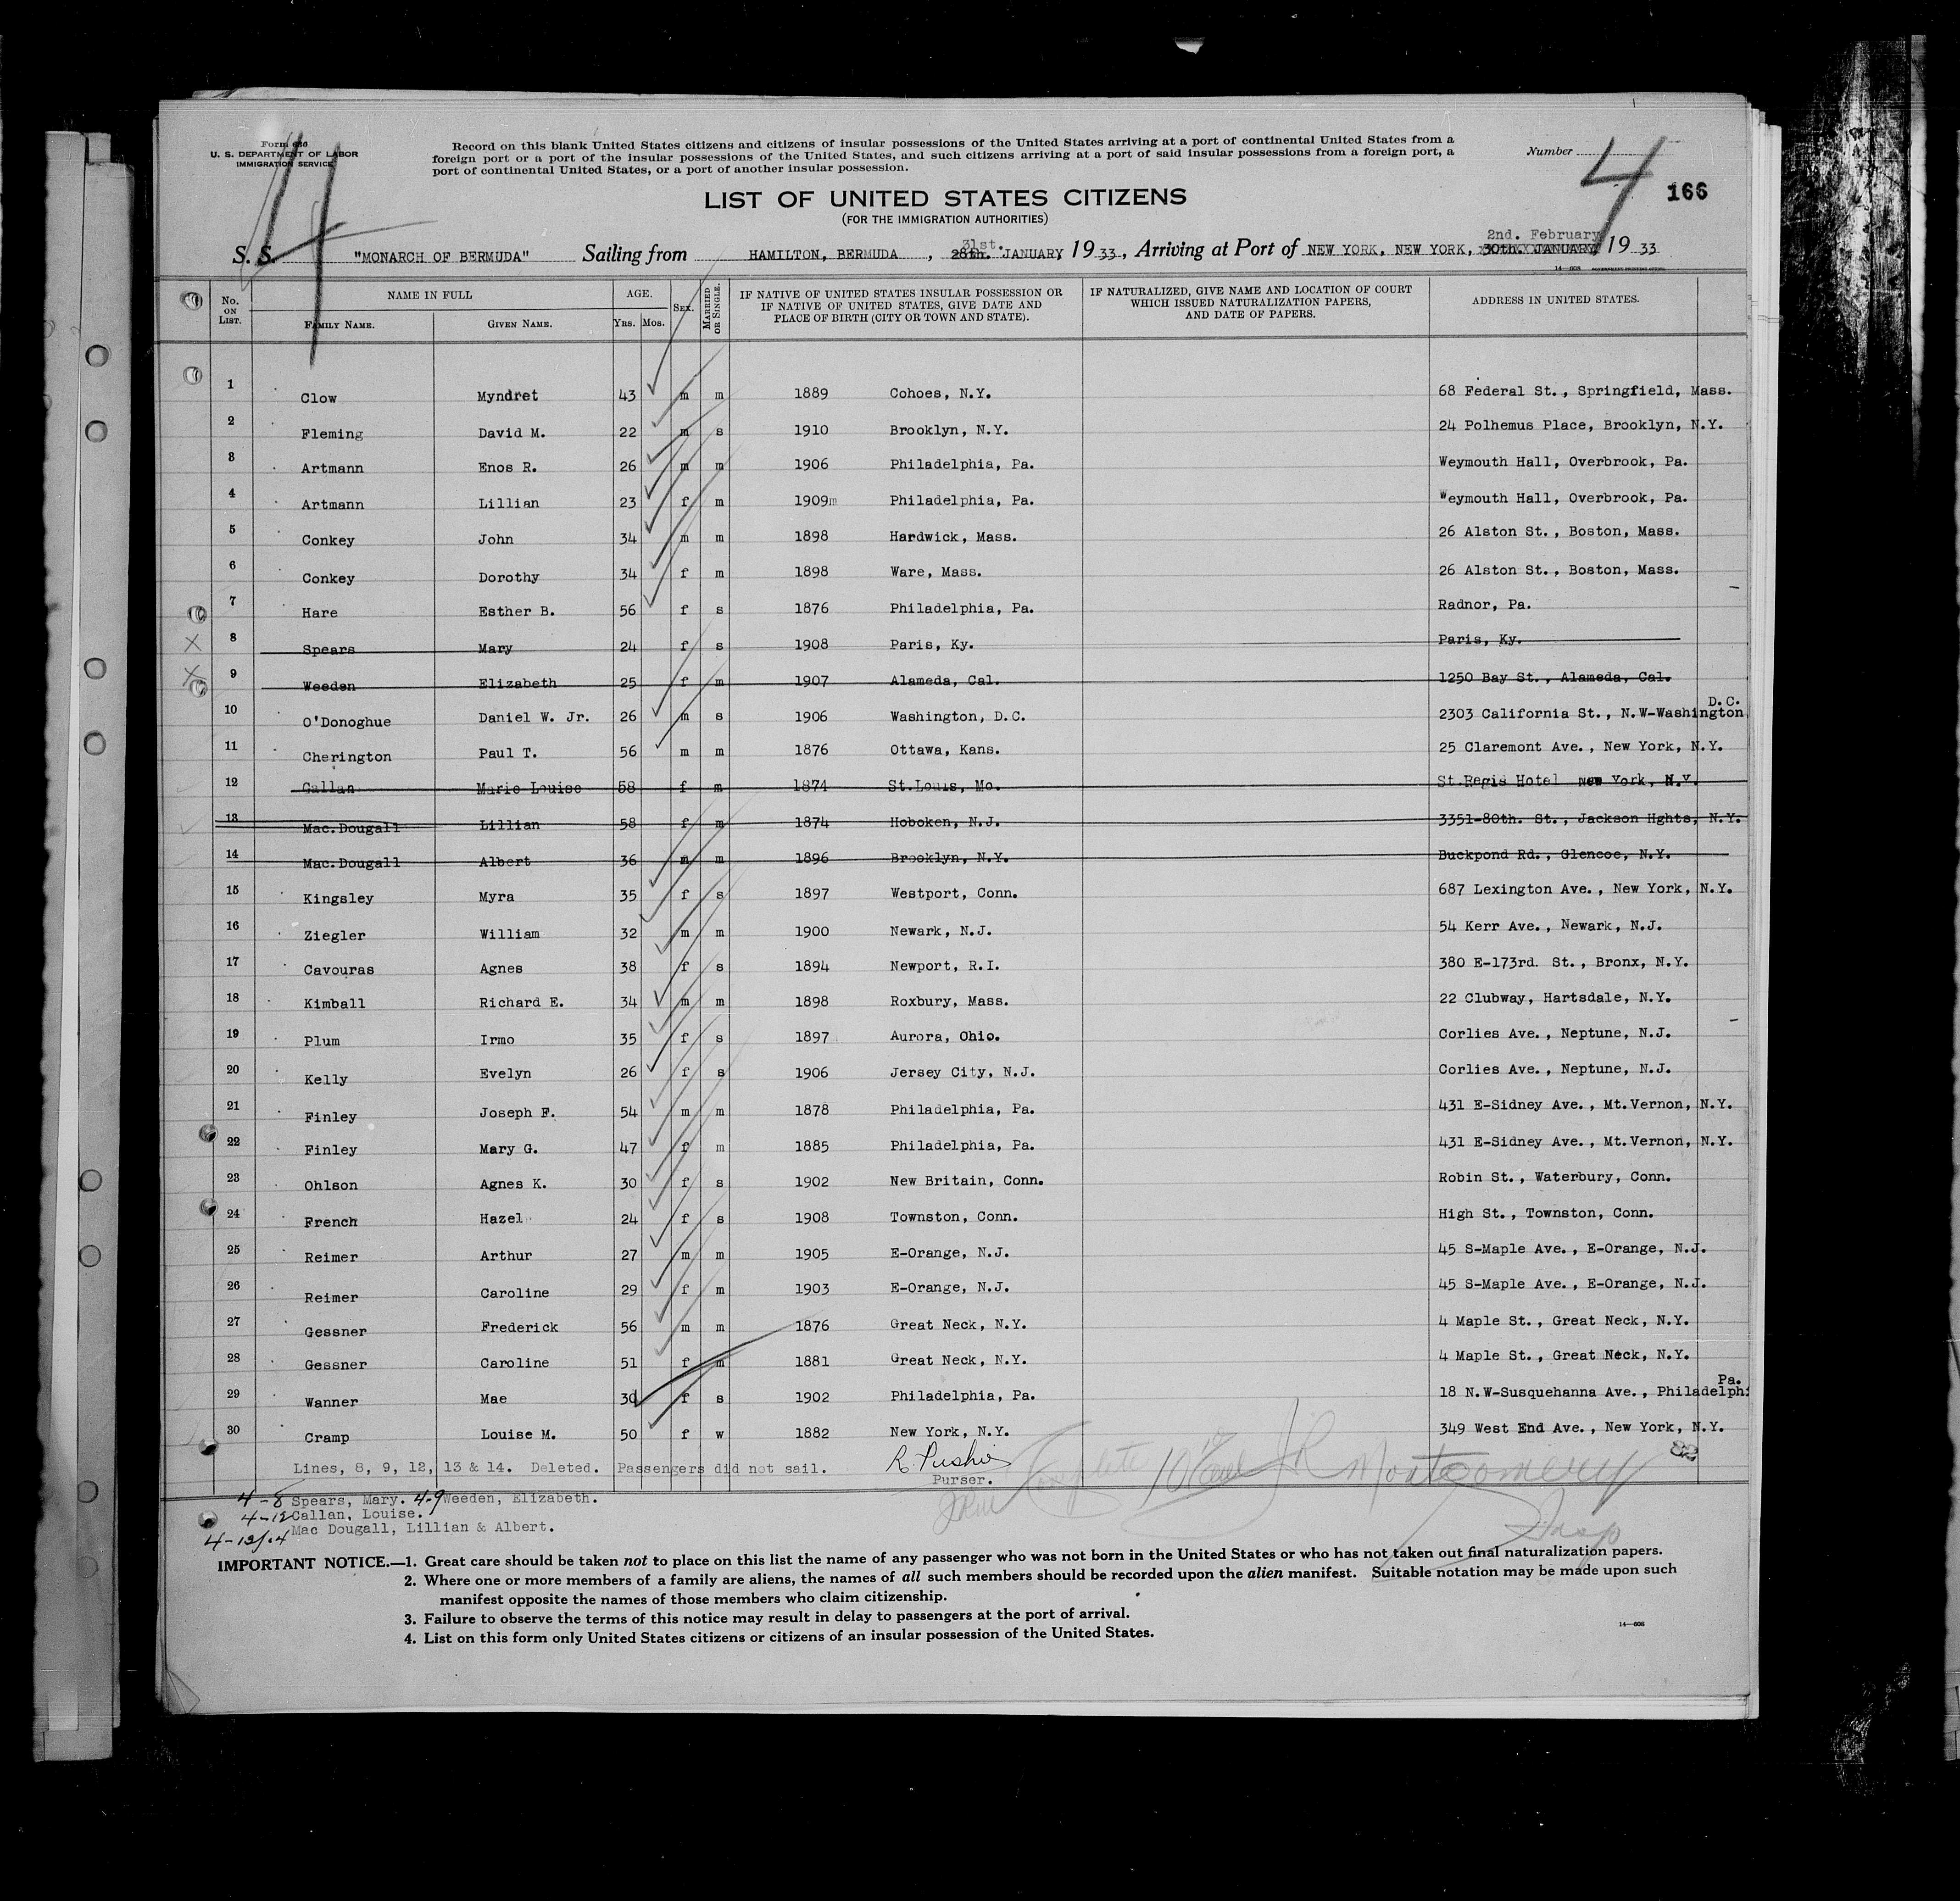 Form 630
U. S. DEPARTMENT OF LABOR
IMMIGRATION SERVICE
Record on this blank United States citizens and citizens of insular possessions of the United States arriving at a port of continental United States from a
foreign port or a port of the insular possessions of the United States, and such citizens arriving at a port of said insular possessions from a foreign port, a
port of continental United States, or a port of another insular possession.
Number 4
166
4
LIST OF UNITED STATES CITIZENS
(FOR THE IMMIGRATION AUTHORITIES)
31st. 2nd. February
S. S. "MONARCH OF BERMUDA" Sailing from HAMILTON, BERMUDA, 28th. JANUARY 1933, Arriving at Port of NEW YORK, NEW YORK, 30th. JANUARY 1933
14—608 GOVERNMENT PRINTING OFFICE
No. ON LIST. NAME IN FULL FAMILY NAME. GIVEN NAME. AGE. YRS. MOS. SEX. MARRIED OR SINGLE. IF NATIVE OF UNITED STATES INSULAR POSSESSION OR IF NATIVE OF UNITED STATES, GIVE DATE AND PLACE OF BIRTH (CITY OR TOWN AND STATE). IF NATURALIZED, GIVE NAME AND LOCATION OF COURT WHICH ISSUED NATURALIZATION PAPERS, AND DATE OF PAPERS. ADDRESS IN UNITED STATES.
1 Clow Myndret 43 m m 1889 Cohoes, N.Y. 68 Federal St., Springfield, Mass.
2 Fleming David M. 22 m s 1910 Brooklyn, N.Y. 24 Polhemus Place, Brooklyn, N.Y.
3 Artmann Enos R. 26 m m 1906 Philadelphia, Pa. Weymouth Hall, Overbrook, Pa.
4 Artmann Lillian 23 f m 1909m Philadelphia, Pa. Weymouth Hall, Overbrook, Pa.
5 Conkey John 34 m m 1898 Hardwick, Mass. 26 Alston St., Boston, Mass.
6 Conkey Dorothy 34 f m 1898 Ware, Mass. 26 Alston St., Boston, Mass.
7 Hare Esther B. 56 f s 1876 Philadelphia, Pa. Radnor, Pa.
X 8 Spears Mary 24 f s 1908 Paris, Ky. Paris, Ky.
X 9 Weeden Elizabeth 25 f m 1907 Alameda, Cal. 1250 Bay St., Alameda, Cal.
10 O'Donoghue Daniel W. Jr. 26 m s 1906 Washington, D.C. 2303 California St., N.W-Washington D.C.
11 Cherington Paul T. 56 m m 1876 Ottawa, Kans. 25 Claremont Ave., New York, N.Y.
12 Callan Marie Louise 58 f m 1874 St.Louis, Mo. St.Regis Hotel New York, N.Y.
13 Mac.Dougall Lillian 58 f m 1874 Hoboken, N.J. 3351-80th. St., Jackson Hghts, N.Y.
14 Mac.Dougall Albert 36 m m 1896 Brooklyn, N.Y. Buckpond Rd., Glencoe, N.Y.
15 Kingsley Myra 35 f s 1897 Westport, Conn. 687 Lexington Ave., New York, N.Y.
16 Ziegler William 32 m m 1900 Newark, N.J. 54 Kerr Ave., Newark, N.J.
17 Cavouras Agnes 38 f s 1894 Newport, R.I. 380 E-173rd. St., Bronx, N.Y.
18 Kimball Richard E. 34 m m 1898 Roxbury, Mass. 22 Clubway, Hartsdale, N.Y.
19 Plum Irmo 35 f s 1897 Aurora, Ohio. Corlies Ave., Neptune, N.J.
20 Kelly Evelyn 26 f s 1906 Jersey City, N.J. Corlies Ave., Neptune, N.J.
21 Finley Joseph F. 54 m m 1878 Philadelphia, Pa. 431 E-Sidney Ave., Mt.Vernon, N.Y.
22 Finley Mary G. 47 f m 1885 Philadelphia, Pa. 431 E-Sidney Ave., Mt.Vernon, N.Y.
23 Ohlson Agnes K. 30 f s 1902 New Britain, Conn. Robin St., Waterbury, Conn.
24 French Hazel 24 f s 1908 Townston, Conn. High St., Townston, Conn.
25 Reimer Arthur 27 m m 1905 E-Orange, N.J. 45 S-Maple Ave., E-Orange, N.J.
26 Reimer Caroline 29 f m 1903 E-Orange, N.J. 45 S-Maple Ave., E-Orange, N.J.
27 Gessner Frederick 56 m m 1876 Great Neck, N.Y. 4 Maple St., Great Neck, N.Y.
28 Gessner Caroline 51 f m 1881 Great Neck, N.Y. 4 Maple St., Great Neck, N.Y.
29 Wanner Mae 30 f s 1902 Philadelphia, Pa. 18 N.W-Susquehanna Ave., Philadelphi Pa.
30 Cramp Louise M. 50 f w 1882 New York, N.Y. 349 West End Ave., New York, N.Y.
Lines, 8, 9, 12, 13 & 14. Deleted. Passengers did not sail.
Purser.
Complete
JR Montgomery
Insp
4-8 Spears, Mary. 4-9 Weeden, Elizabeth.
4-12 Callan, Louise.
4-13/14 Mac Dougall, Lillian & Albert.
IMPORTANT NOTICE.—1. Great care should be taken not to place on this list the name of any passenger who was not born in the United States or who has not taken out final naturalization papers.
2. Where one or more members of a family are aliens, the names of all such members should be recorded upon the alien manifest. Suitable notation may be made upon such
manifest opposite the names of those members who claim citizenship.
3. Failure to observe the terms of this notice may result in delay to passengers at the port of arrival.
4. List on this form only United States citizens or citizens of an insular possession of the United States.
14—608